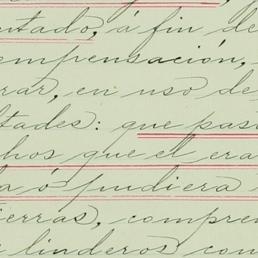 ntado, á fin de
ompensación,
rar, en uso de
ltades: que pas
hos que el era
a ó pudiera
ierras, compre
linderos con